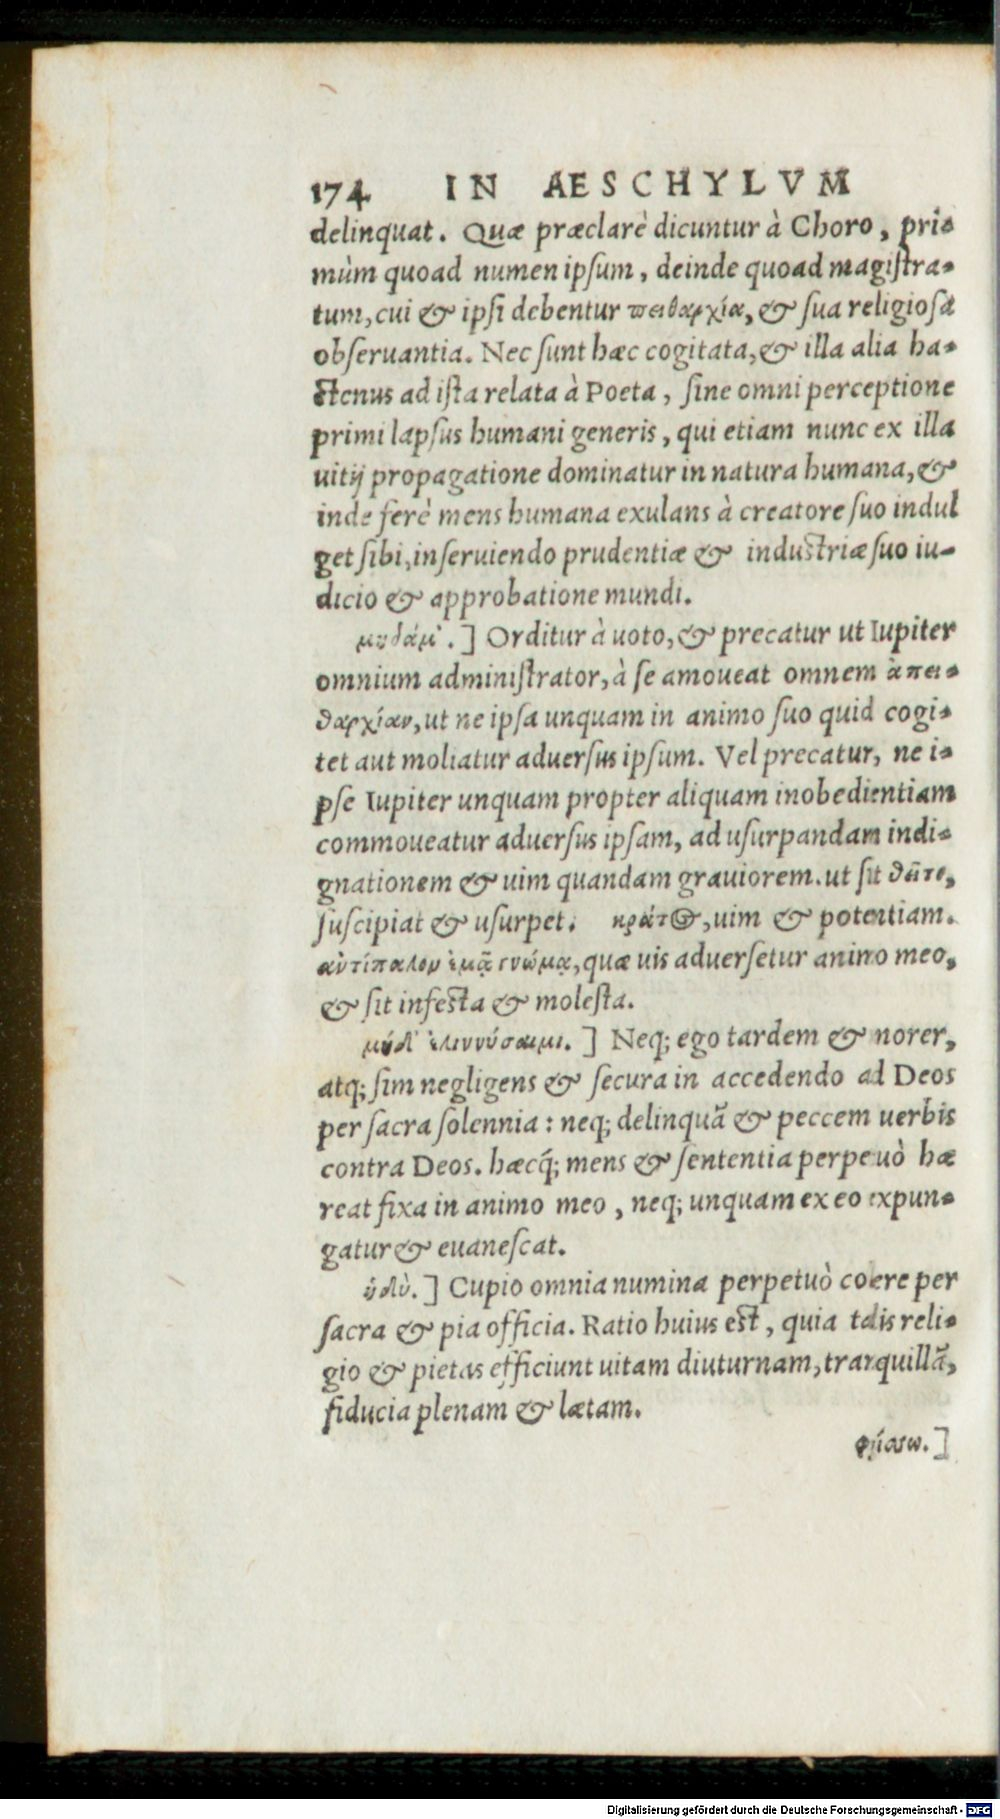 174 IN AESCHYLVM
delinquat. Quæ præclarè dicuntur à Choro, pri-
mùm quoad numen ipsum, deinde quoad magistra-
tum, cui & ipsi debentur πειθαρχία, & sua religiosa
obseruantia. Nec sunt hæc cogitata, & illa alia ha-
ctenus ad ista relata à Poeta, sine omni perceptione
primi lapsus humani generis, qui etiam nunc ex illa
uitij propagatione dominatur in natura humana, &
inde ferè mens humana exulans à creatore suo indul
get sibi, inseruiendo prudentiæ & industriæ suo iu-
dicio & approbatione mundi.
μηδάμ'.] Orditur à uoto, & precatur ut Iupiter
omnium administrator, à se amoueat omnem ἀπει-
θαρχίαν, ut ne ipsa unquam in animo suo quid cogi-
tet aut moliatur aduersus ipsum. Vel precatur, ne i-
pse Iupiter unquam propter aliquam inobedientiam
commoueatur aduersus ipsam, ad usurpandam indi-
gnationem & uim quandam grauiorem. ut sit θεῖτο,
suscipiat & usurpet. κράτος, uim & potentiam.
ἀντίπαλον ἐμᾷ γνώμᾳ, quæ uis aduersetur animo meo,
& sit infesta & molesta.
μηδ' ἐλιννύσαιμι.] Neq; ego tardem & morer,
atq; sim negligens & secura in accedendo ad Deos
per sacra solennia: neq; delinquā & peccem uerbis
contra Deos. hæcq́; mens & sententia perpetuò hæ
reat fixa in animo meo, neq; unquam ex eo expun-
gatur & euanescat.
ἡδύ.] Cupio omnia numina perpetuò colere per
sacra & pia officia. Ratio huius est, quia talis reli-
gio & pietas efficiunt uitam diuturnam, tranquillā,
fiducia plenam & lætam.
φρίσσω.]
Digitalisierung gefördert durch die Deutsche Forschungsgemeinschaft - DFG